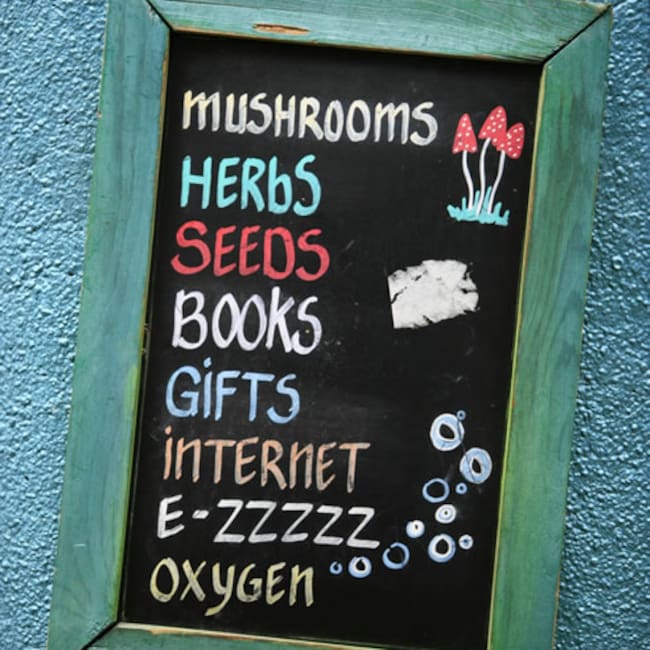 MUSHROOMS
HERbS
SEEDS
BOOKS
GiFTS
iNTERNET
E-ZZZZZ
OXYGEN